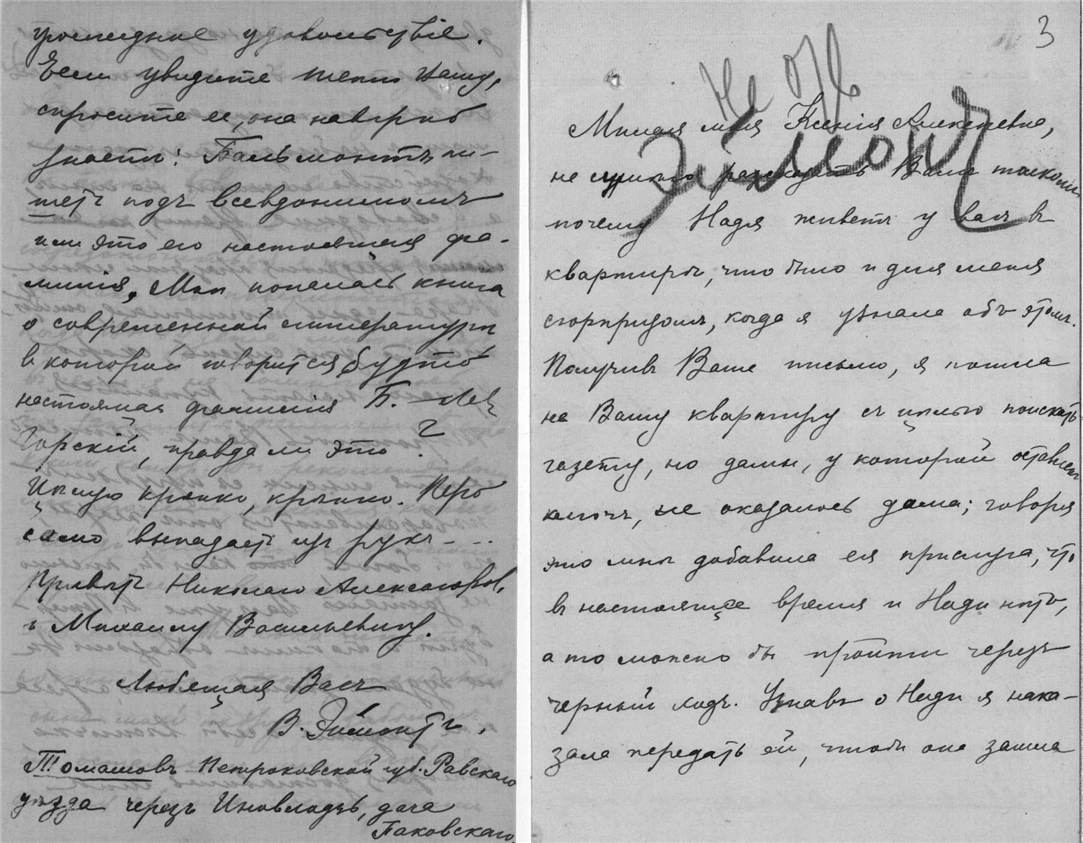 громадное удовольствіе.
Если увидите тетю Нашу,
спросите ее, она навѣрно
знаетъ! Бальмонтъ пи-
шетъ подъ псевдонимомъ
или это его настоящая фа-
милія. Мнѣ попалась книга
о современной литературѣ
в которой говорится будто
настоящая фамилія Б.
Горскій, правда ли это?
Цѣлую крѣпко, крѣпко. Перо
само выпадаетъ изъ рукъ - ...
Привѣтъ Николаю Александров.
и Михаилу Васильевичу.
Любящая Васъ
В. Эймонтъ.
Томашовъ Петроковской губ. Равскаго
уѣзда черезъ Иновлодзь, дача
Паковскаго
3
Не отв
Эймонт
Милая моя Ксенія Алексѣевна,
не сумѣю разсказать Вамъ толкомъ
почему Надя живетъ у васъ в
квартирѣ, что было и для меня
сюрпризомъ, когда я узнала объ этомъ.
Получивъ Ваше письмо, я пошла
на Вашу квартиру съ цѣлью поискать
газету, но дамы, у которой оставленъ
ключъ, не оказалось дома; говоря
это мнѣ добавила ея прислуга, что
в настоящее время и Нади нѣтъ,
а то можно бы пройти черезъ
черный ходъ. Узнавъ о Надѣ я нака-
зала передать ей, чтобы она зашла